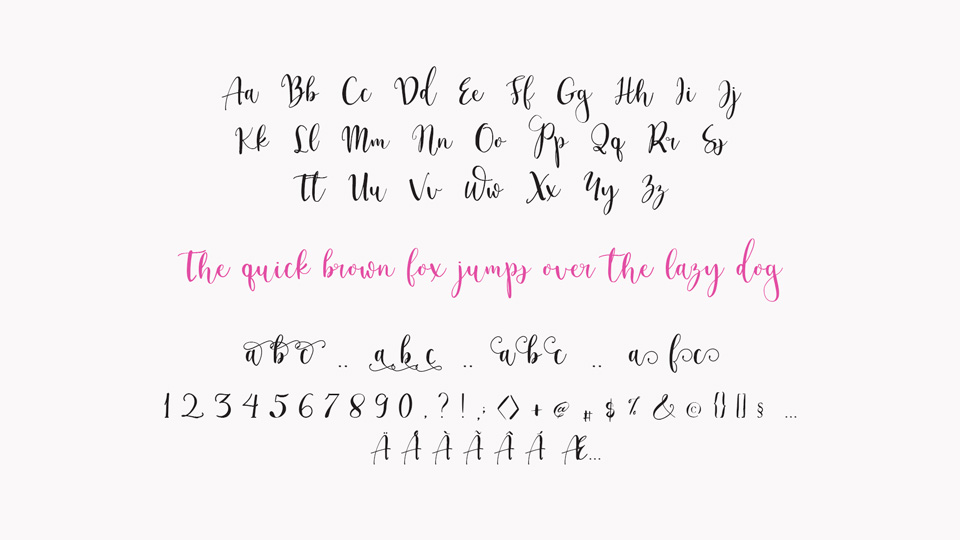 Aa Bb Cc Dd Ee Ff Gg Hh Ii Jj
Kk Ll Mm Nn Oo Pp Qq Rr Ss
Tt Uu Vv Ww Xx Yy Zz
The quick brown fox jumps over the lazy dog
a b c .. a b c .. a b c .. a f c
1 2 3 4 5 6 7 8 9 0 , ? ! ; : <> + @ # $ % & © {} [] § ...
Ä Å À Ã Â Á Æ...